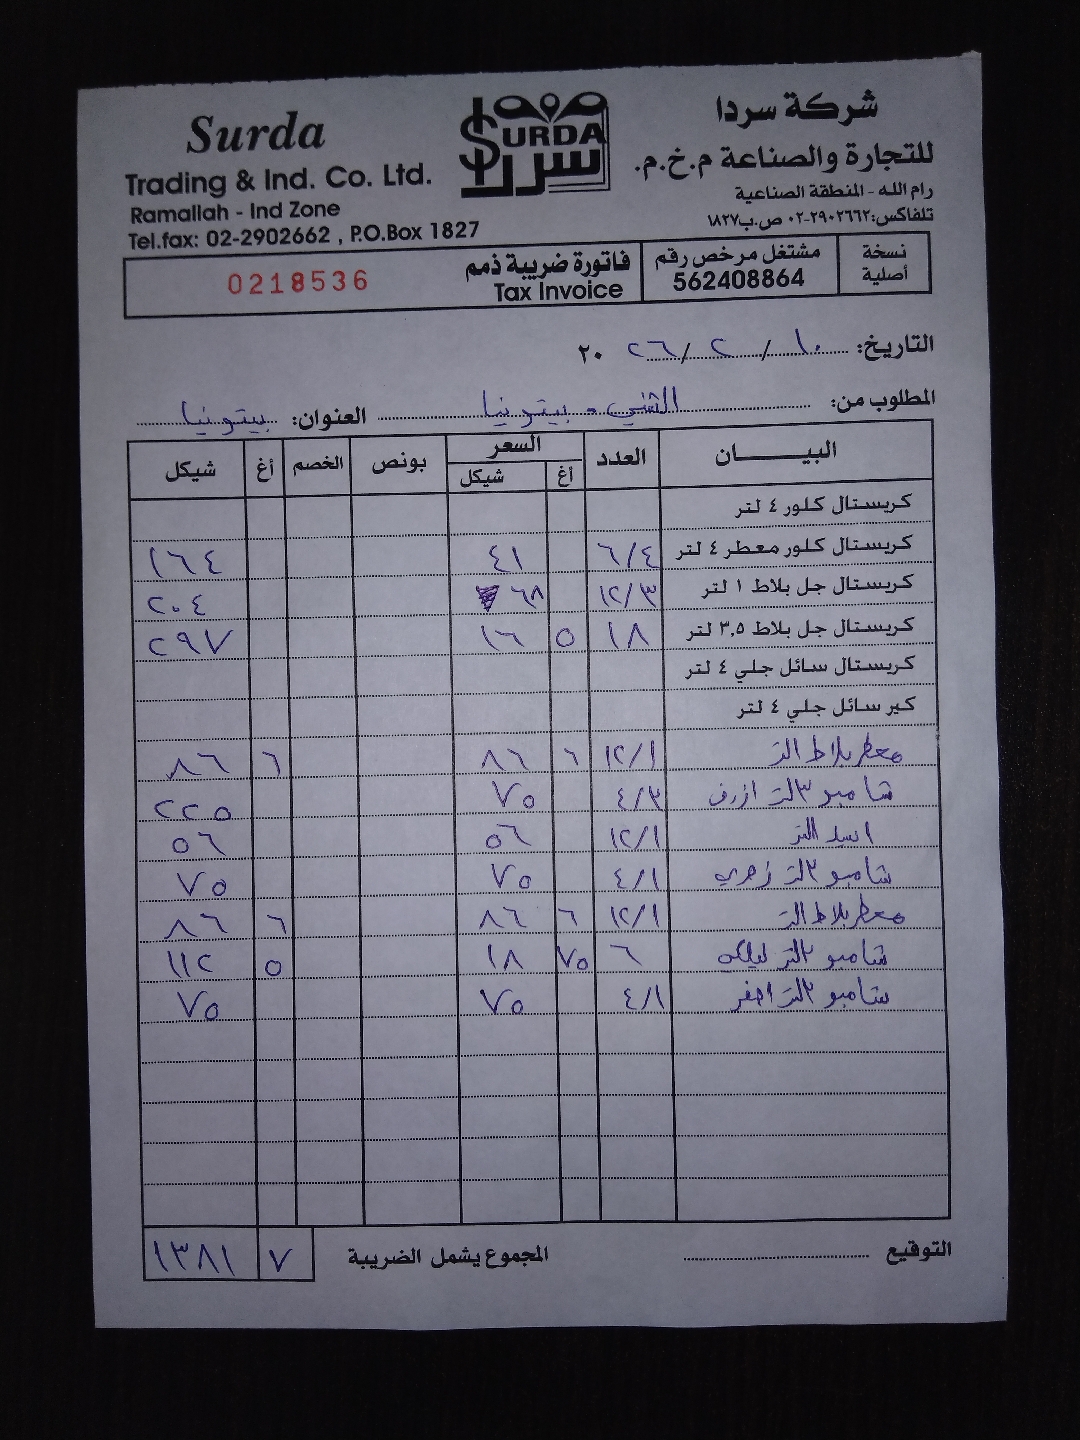 Surda
Trading & Ind. Co. Ltd.
Ramallah - Ind Zone
Tel.fax: 02-2902662 , P.O.Box 1827
SURDA
سردا
شركة سردا
للتجارة والصناعة م.خ.م.
رام الله - المنطقة الصناعية
تلفاكس: ٠٢-٢٩٠٢٦٦٢ ص.ب ١٨٢٧
نسخة أصلية
مشتغل مرخص رقم 562408864
فاتورة ضريبة ذمم
Tax Invoice
0218536
التاريخ: ١٠ / ٢ / ٢٦ ٢٠
المطلوب من: الثني - بيتونيا العنوان: بيتونيا
البيـــــان العدد السعر بونص الخصم أغ شيكل
أغ شيكل
كريستال كلور ٤ لتر
كريستال كلور معطر ٤ لتر ٦/٤ ٤١ ١٦٤
كريستال جل بلاط ١ لتر ١٢/٣ ٦٨ ٢٠٤
كريستال جل بلاط ٣,٥ لتر ١٨ ٥ ١٦ ٢٩٧
كريستال سائل جلي ٤ لتر
كير سائل جلي ٤ لتر
معطر بلاط ١لتر ١٢/١ ٦ ٨٦ ٦ ٨٦
شامبو ٣لتر ازرق ٤/٣ ٧٥ ٢٢٥
١لتر ١٢/١ ٥٦ ٥٦
شامبو ٣لتر زهري ٤/١ ٧٥ ٧٥
معطر بلاط ١لتر ١٢/١ ٦ ٨٦ ٦ ٨٦
شامبو ٣لتر ليلكي ٦ ٧٥ ١٨ ٥ ١١٢
شامبو ٣لتر اصفر ٤/١ ٧٥ ٧٥
التوقيع المجموع يشمل الضريبة ٧ ١٣٨١